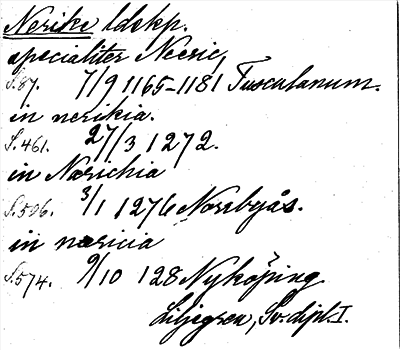 Nerike ldskp.
specialiter Neeric,
S.87. 7/9 1165-1181 Tusculanum.
in nerikia.
S.461. 27/3 1272.
in Nærichia
S.506. 3/1 1276 Norrbyås.
in næricia
S.574. 9/10 128 Nyköping
Liljegren, Sv. dipl. I.